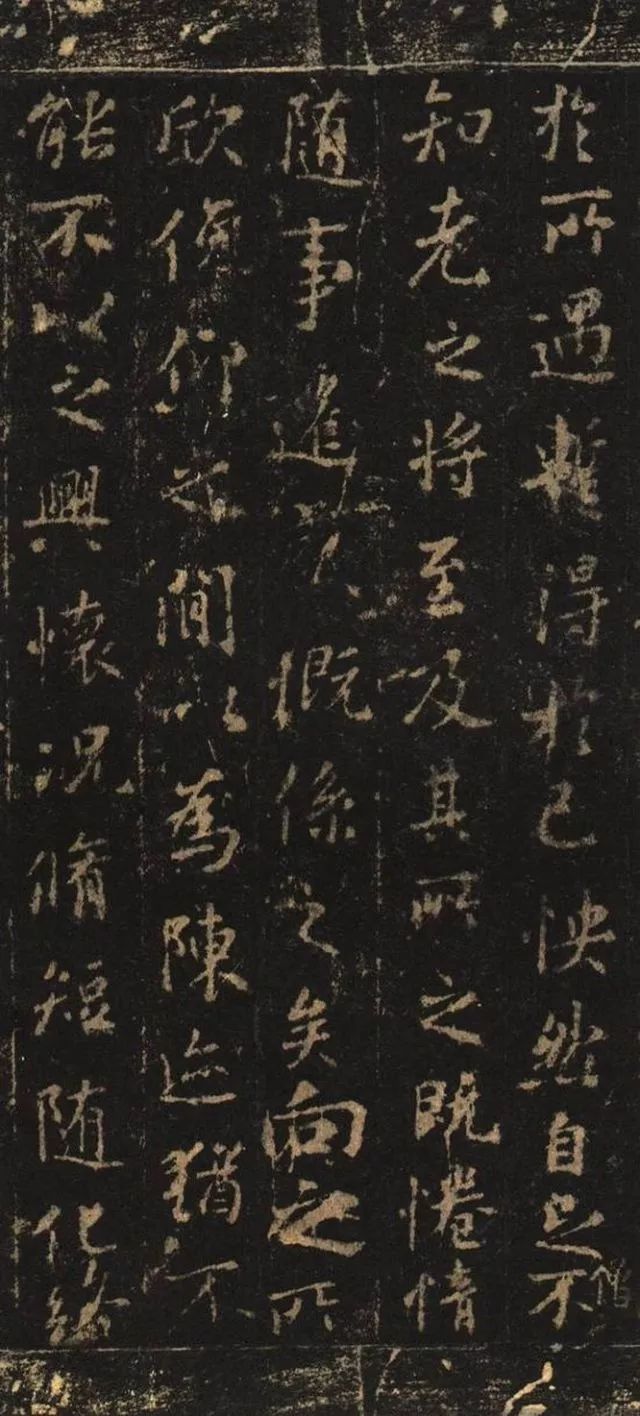 於所遇暫得於己怏然自足不
僧
知老之將至及其所之既惓情
随事遷感慨係之矣向之所
欣俛仰之間以為陳迹猶不
能不以之興懷況脩短随化終